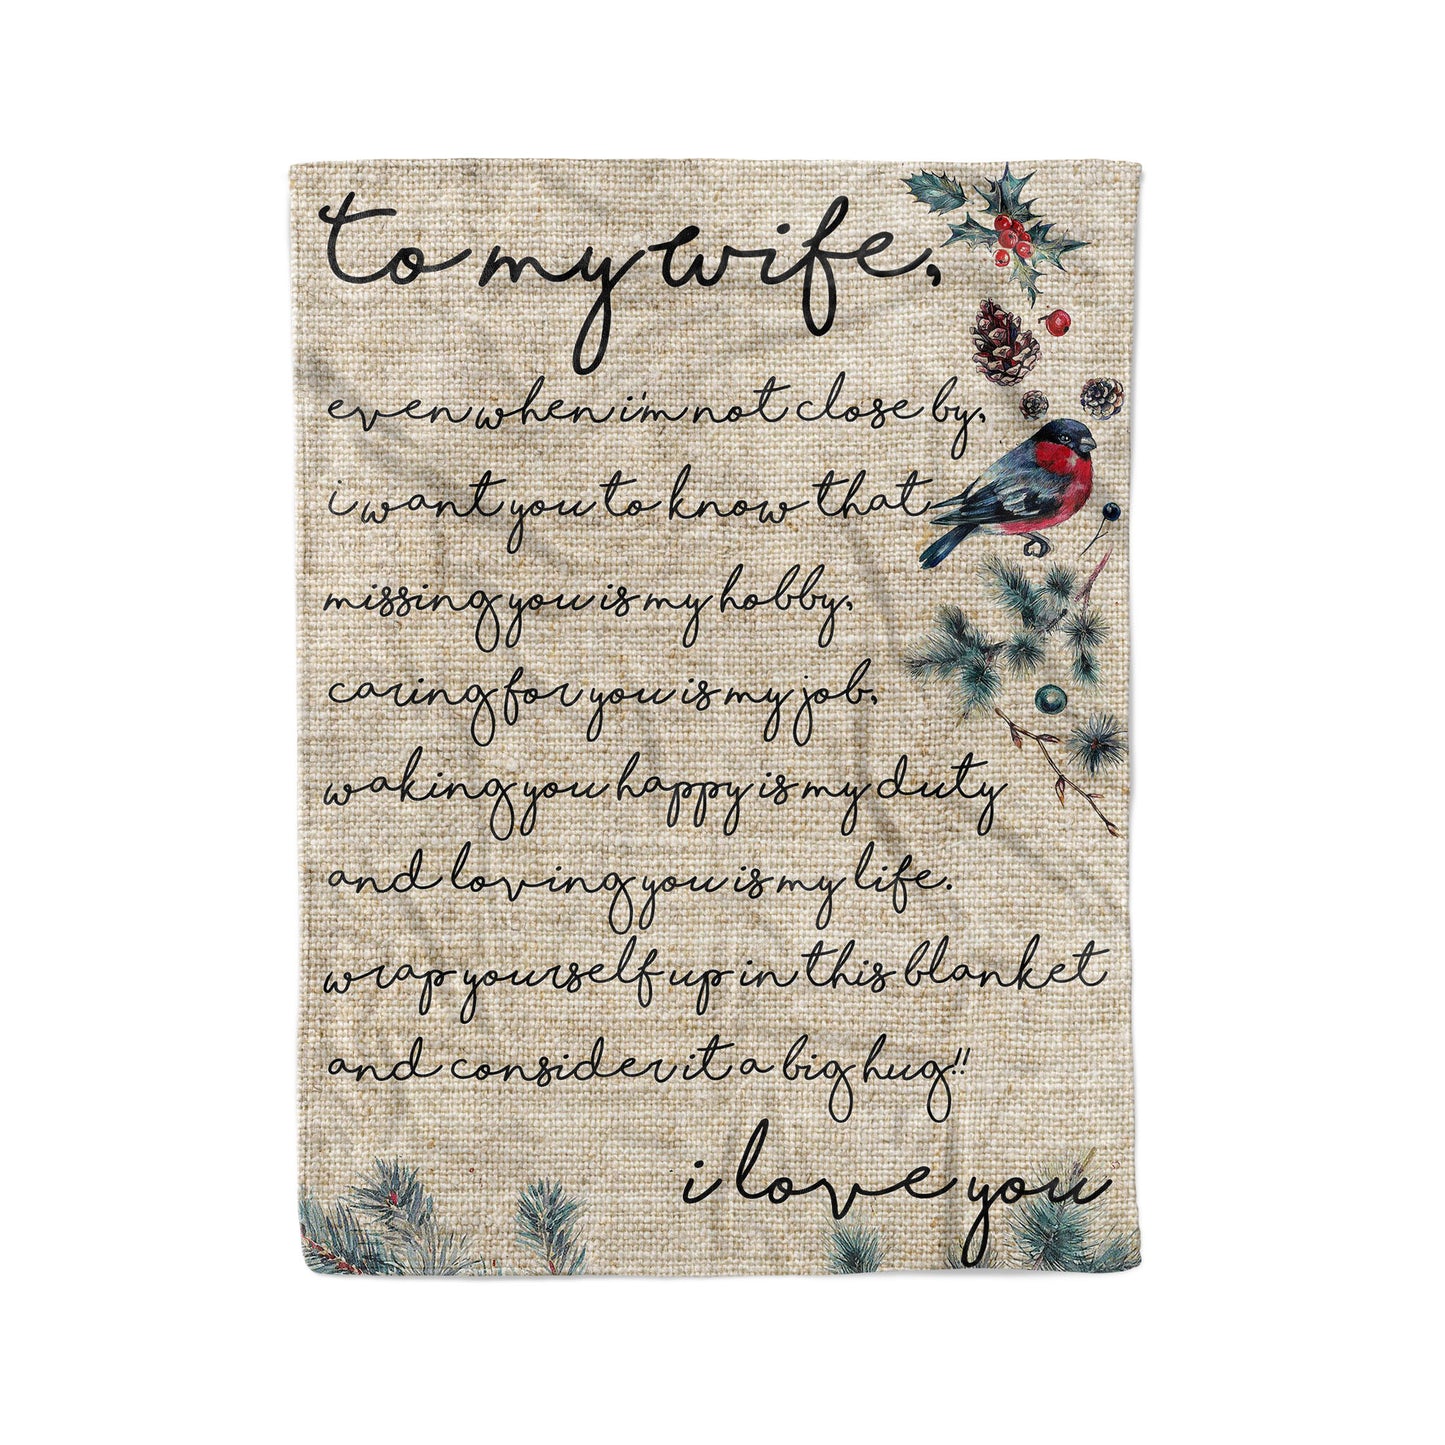 to my wife,
even when i'm not close by,
i want you to know that
missing you is my hobby,
caring for you is my job,
waking you happy is my duty
and loving you is my life.
wrap yourself up in this blanket
and consider it a big hug!!
i love you